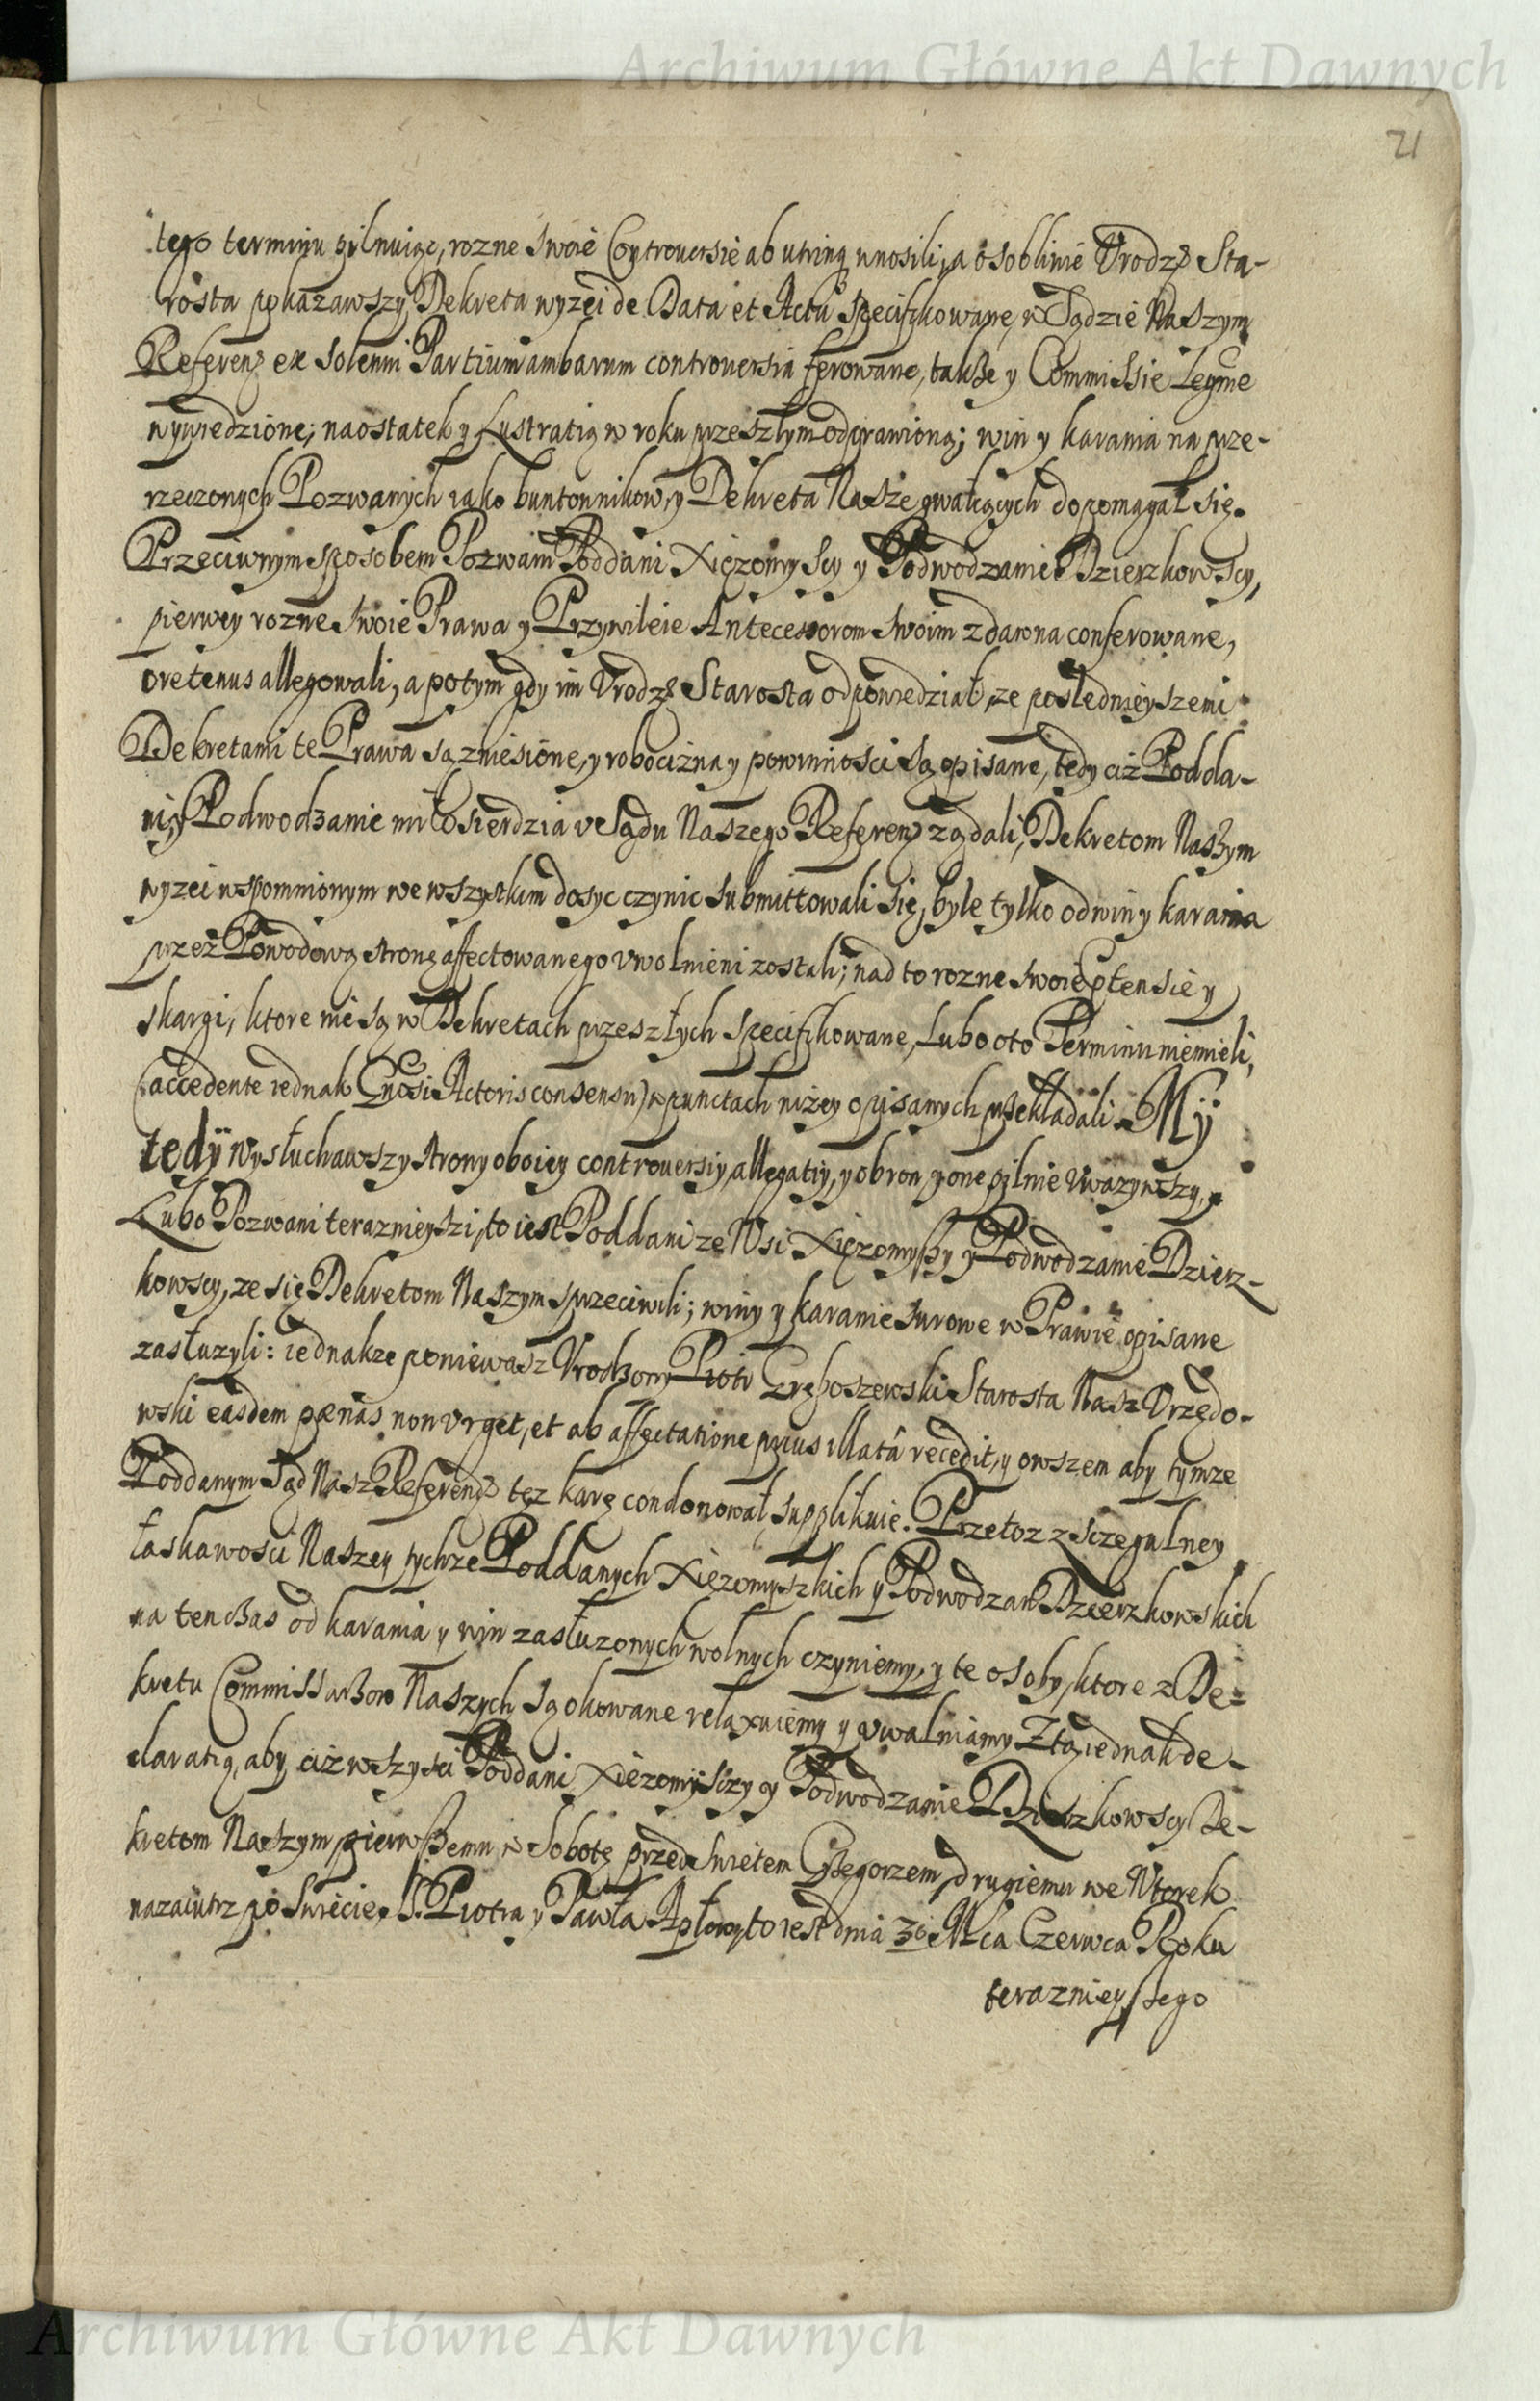 Archiwum Główne Akt Dawnych
21
tego terminu pilnuiąc, rozne swoie Controuersie ab utrinq wnosili, a osobliwie Vrodz. Sta-
rosta pokazawszy Dekreta wyzei de Data et Actu specifikowane, w Sądzie Naszym
Referen. ex solenni Partium ambarum controuersia ferowane, takße y Commissie Legme
wywiedzione; naostatek y Lustratią w roku przeszłym odprawioną; win y karania na prze-
rzeczonych Pozwanych iako buntownikow, y Dekreta Nasze gwałcących dopomagał się.
Przeciwnym sposobem Pozwani Poddani Xięzomyscy y Podwodzanie Dzierzkowscy,
pierwey rozne swoie Prawa y Przywileie Antecessorom swoim zdawna conferowane,
oretenus allegowali, a potym gdy im Vrodz. Starosta odpowiedział, ze poslednieyszemi
Dekretami te Prawa są zniesione, y robocizna y powinnosci są opisane, tedy ciż Podda-
ni y Podwodzanie miłosierdzia v Sądu Naszego Referen. ządali, Dekretom Naszym
wyzei wspomnionym we wszystkim dosyc czynic submittowali się, byle tylko od win y karania
przez Powodową stronę affectowanego vwolnieni zostali; nad to rozne swoie Ptensie y
skargi, ktore nie są w Dekretach przeszłych specifikowane, Lubo oto Terminu niemieli,
(accedente iednak Gnosi Actoris consensu) w punctach niżey opisanych przekładali. My
tedy wysłuchawszy strony oboiey controuersiy, allegatiy, y obron, y one pilnie vwazywszy,
Lubo Pozwani teraznieyszi, to iest Poddani ze Wsi Xięzomyßy y Podwodzanie Dzierz-
kowscy, ze się Dekretom Naszym sprzeciwili; winy y karanie surowe w Prawie opisane
zasłuzyli: iednakze poniewasz Vrodzony Piotr Gręboszewski Starosta Nasz Vrzędo-
wski easdem pœnas non vrget, et ab affectatione prius illatâ recedit, y owszem aby tymze
Poddanym Sąd Nasz Referend. tęz karę condonował, supplikuie. Przetoz z sczegulney
łaskawosci Naszey tychze Poddanych Xięzomyszkich y Podwodzan Dzierzkowskich
na ten czas od karania y win zasłuzonych wolnych czyniemy, y te osoby, ktore z De-
kretu Commissarzow Naszych są okowane relaxuiemy y vwalniamy. Ztą iednak de-
claratią, aby ciż wszysci Poddani Xięzomysczy y Podwodzanie Dzierzkowscy De-
kretom Naszym pierwßemu w Sobotę przed Swiętem Grzegorzem, drugiemu we Wtorek
nazaiutrz po Swięcie, S. Piotra y Pawła Apłow, to iest dnia 30 Mca Czerwca Roku
teraznieyßego
Archiwum Główne Akt Dawnych